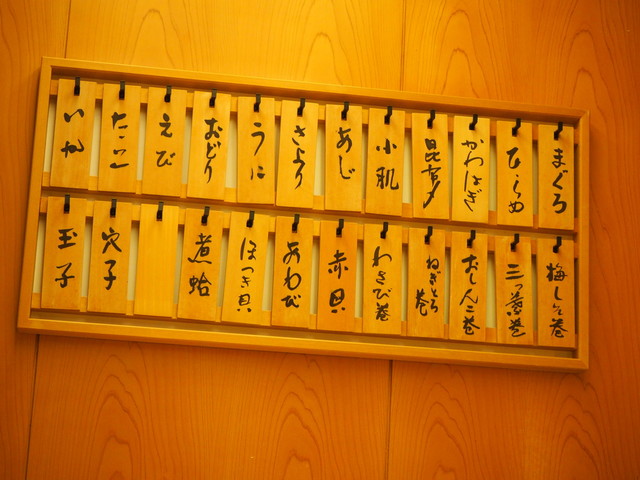 まぐろ
ひらめ
かわはぎ
昆布〆
小肌
あじ
さより
うに
おどり
えび
たこ
いか
梅しそ巻
三つ葉巻
おしんこ巻
ねぎとろ巻
わさび巻
赤貝
あわび
ほっき貝
煮蛤
穴子
玉子